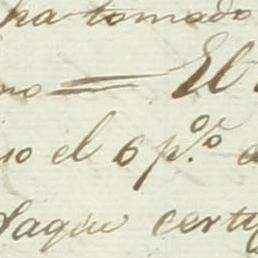 ha tomado
no = El
io el 6 p.º a
Jaque certi